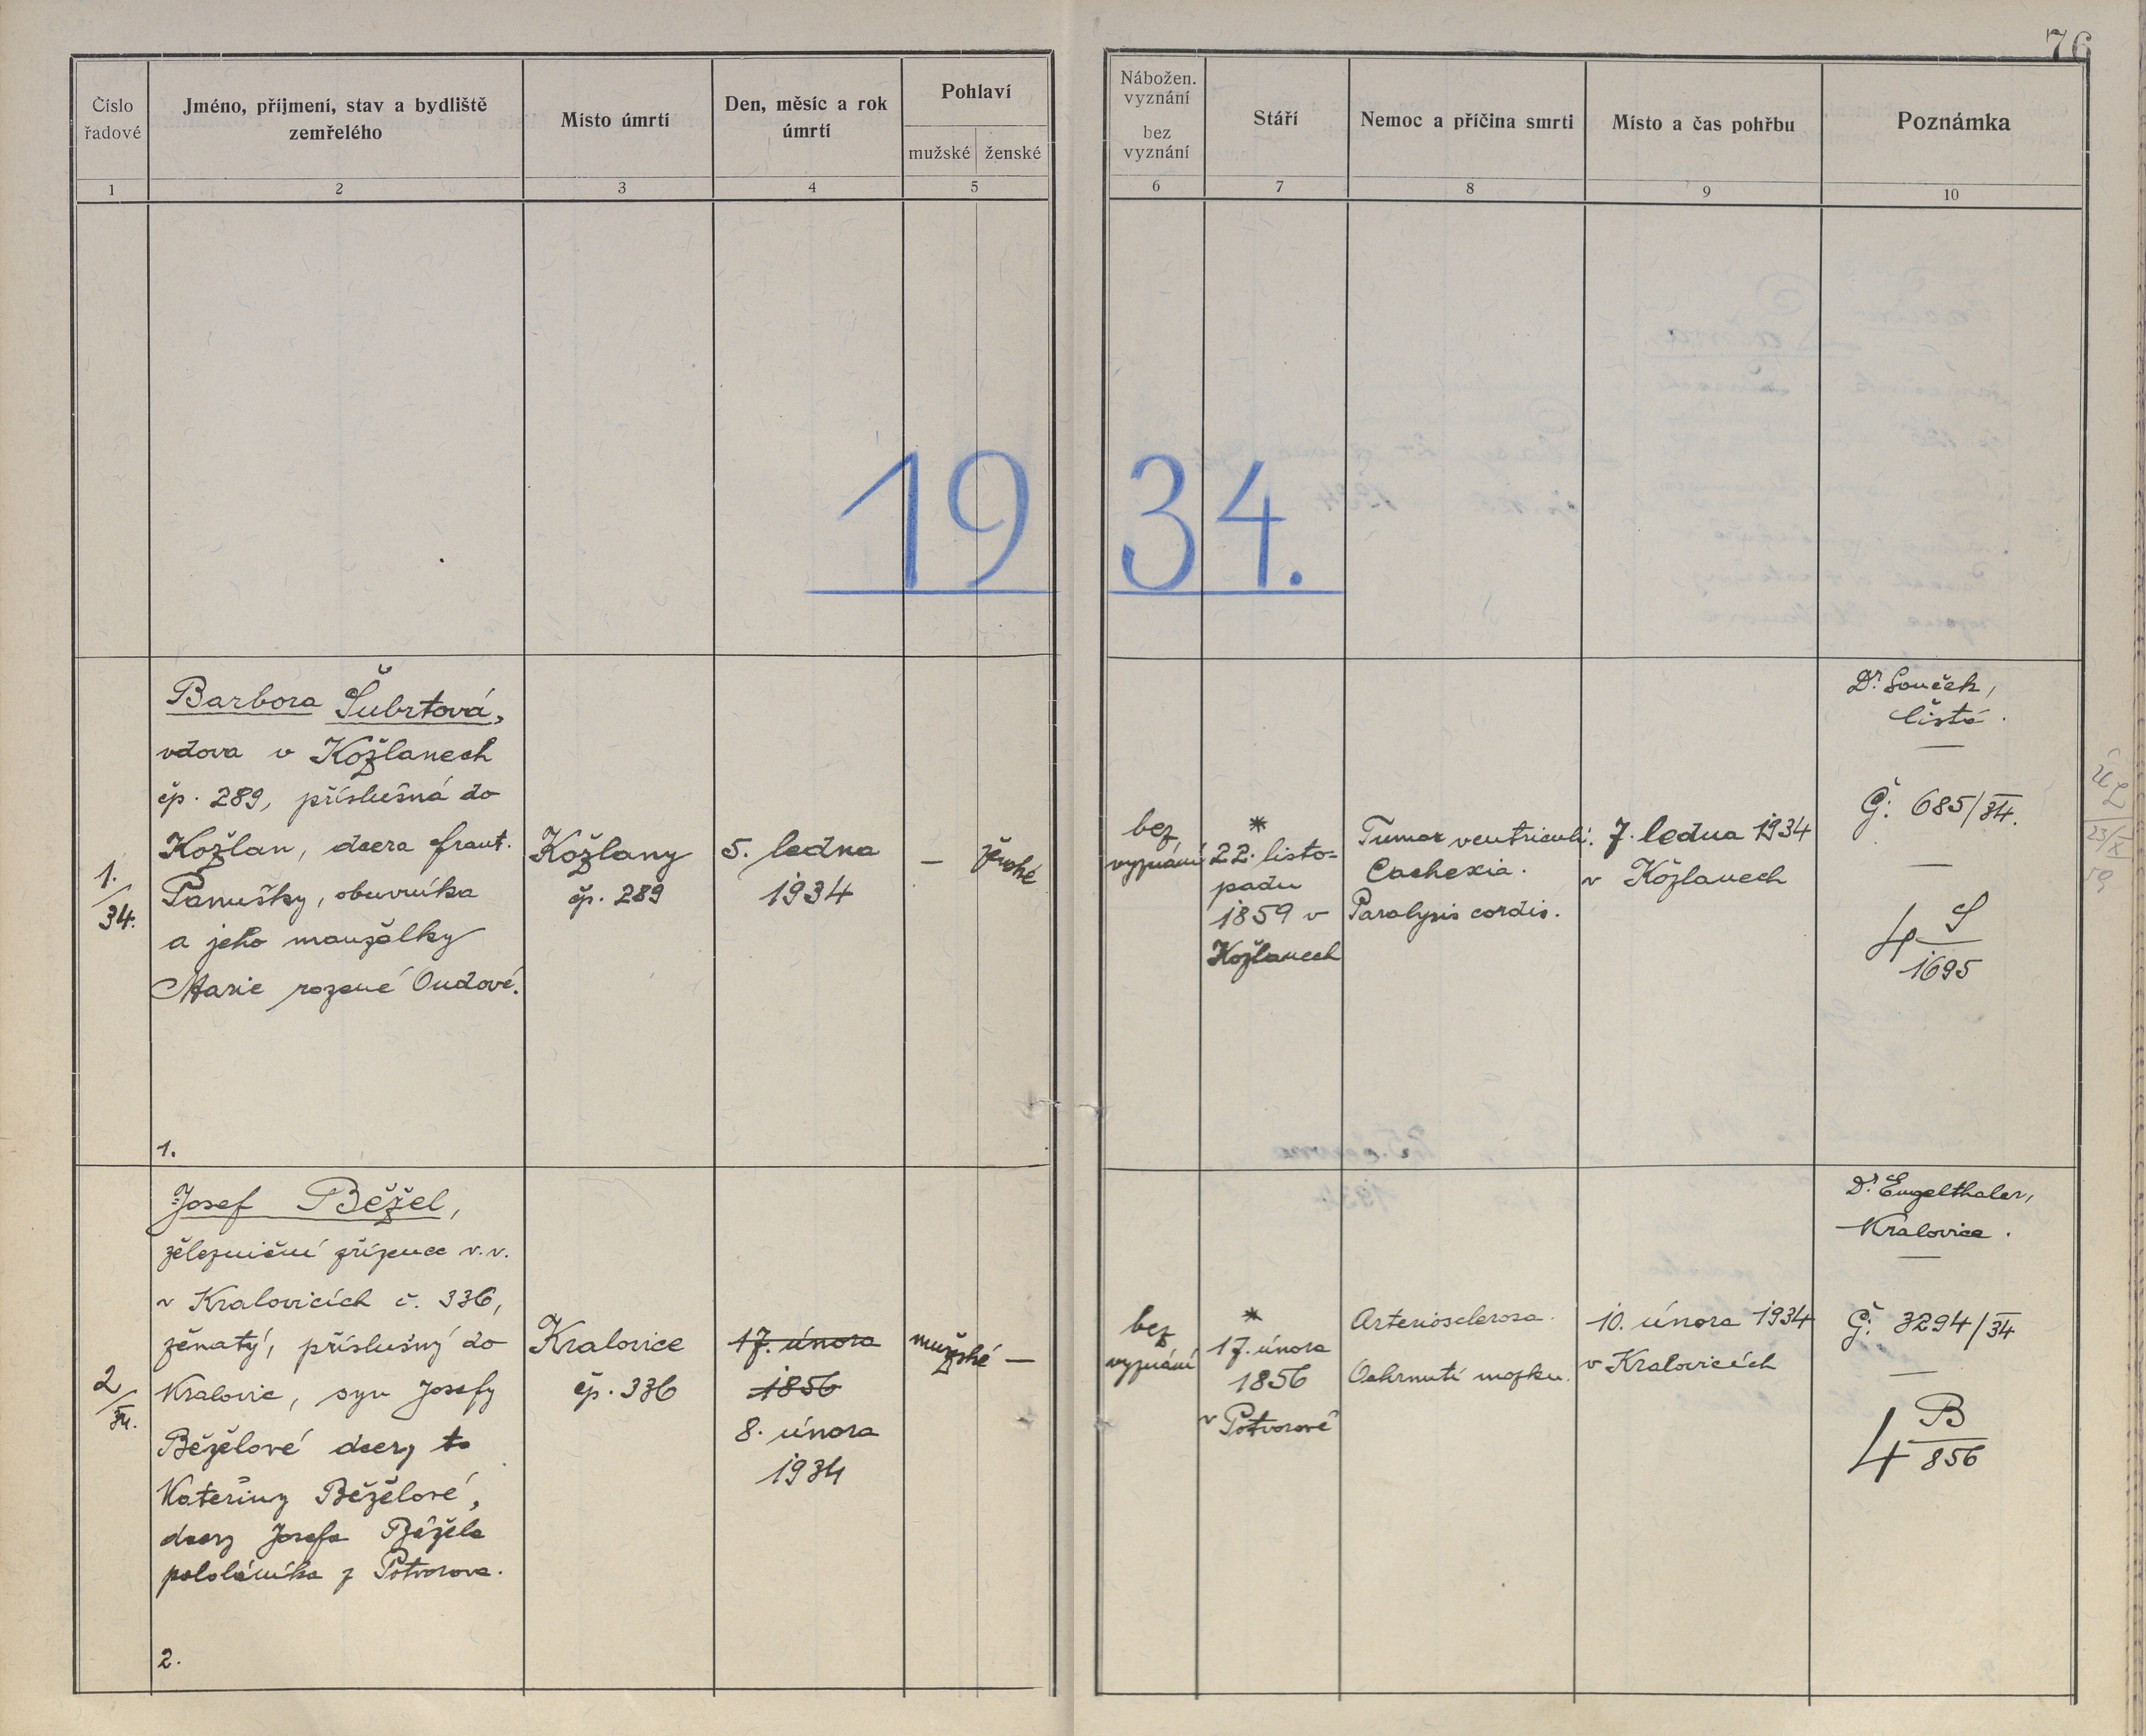 76
Číslo
řadové
Jméno, příjmení, stav a bydliště
zemřelého
Místo úmrtí
Den, měsíc a rok
úmrtí
Pohlaví
mužské ženské
Nábožen.
vyznání
bez
vyznání
Stáří
Nemoc a příčina smrti
Místo a čas pohřbu
Poznámka
1 2 3 4 5 6 7 8 9 10
1934.
1./34.
Barbora Šubrtová,
vdova v Kožlanech
čp. 289, příslušná do
Kožlan, dcera Frant.
Panušky, obuvníka
a jeho manželky
Marie rozené Oudové.
1.
Kožlany
čp. 289
5. ledna
1934
— ženské
bez
vyznání
*
22. listo-
padu
1859 v
Kožlanech
Tumor ventriculi.
Cachexia.
Paralysis cordis.
7. ledna 1934
v Kožlanech
Dr. Souček,
Čistá.
Č: 685/34.
4 Š
1695
23/X
59
2/34.
Josef Běžel,
železniční zřízenec v.v.
v Kralovicích č. 336,
ženatý, příslušný do
Kralovic, syn Josefy
Běželové dcery to
Kateřiny Běželové,
dcery Josefa Běžela
pololáníka z Potvorova.
2.
Kralovice
čp. 336
17. února
1856
8. února
1934
mužské —
bez
vyznání
*
17. února
1856
v Potvorově
Arteriosclerosa.
Ochrnutí mozku.
10. února 1934
v Kralovicích
Dr. Engelthaler,
Kralovice.
Č: 3294/34
4 B
856